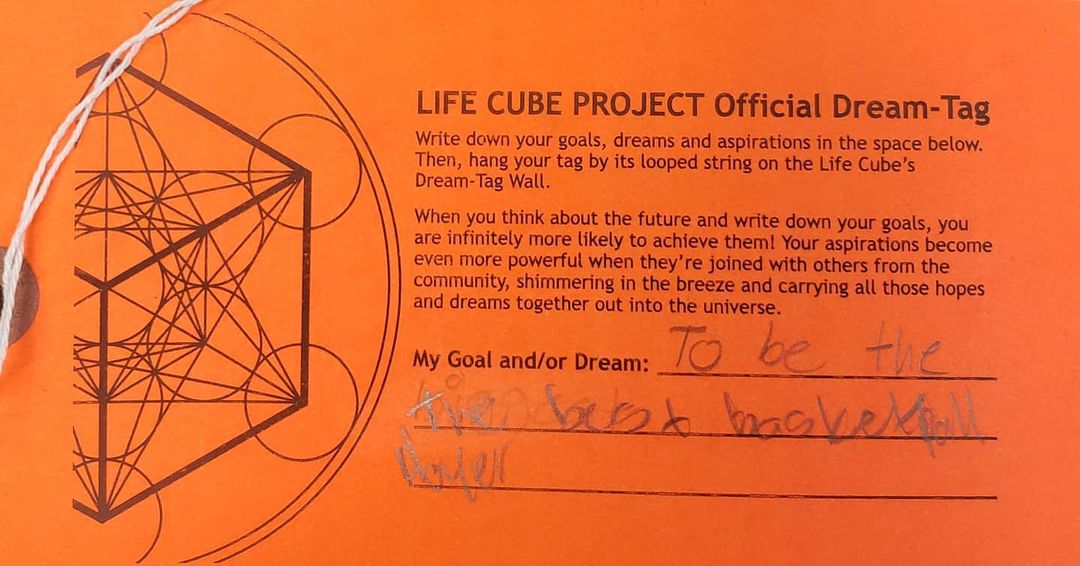 LIFE CUBE PROJECT Official Dream-Tag
Write down your goals, dreams and aspirations in the space below.
Then, hang your tag by its looped string on the Life Cube's
Dream-Tag Wall.
When you think about the future and write down your goals, you
are infinitely more likely to achieve them! Your aspirations become
even more powerful when they're joined with others from the
community, shimmering in the breeze and carrying all those hopes
and dreams together out into the universe.
My Goal and/or Dream: To be the
the best basketball